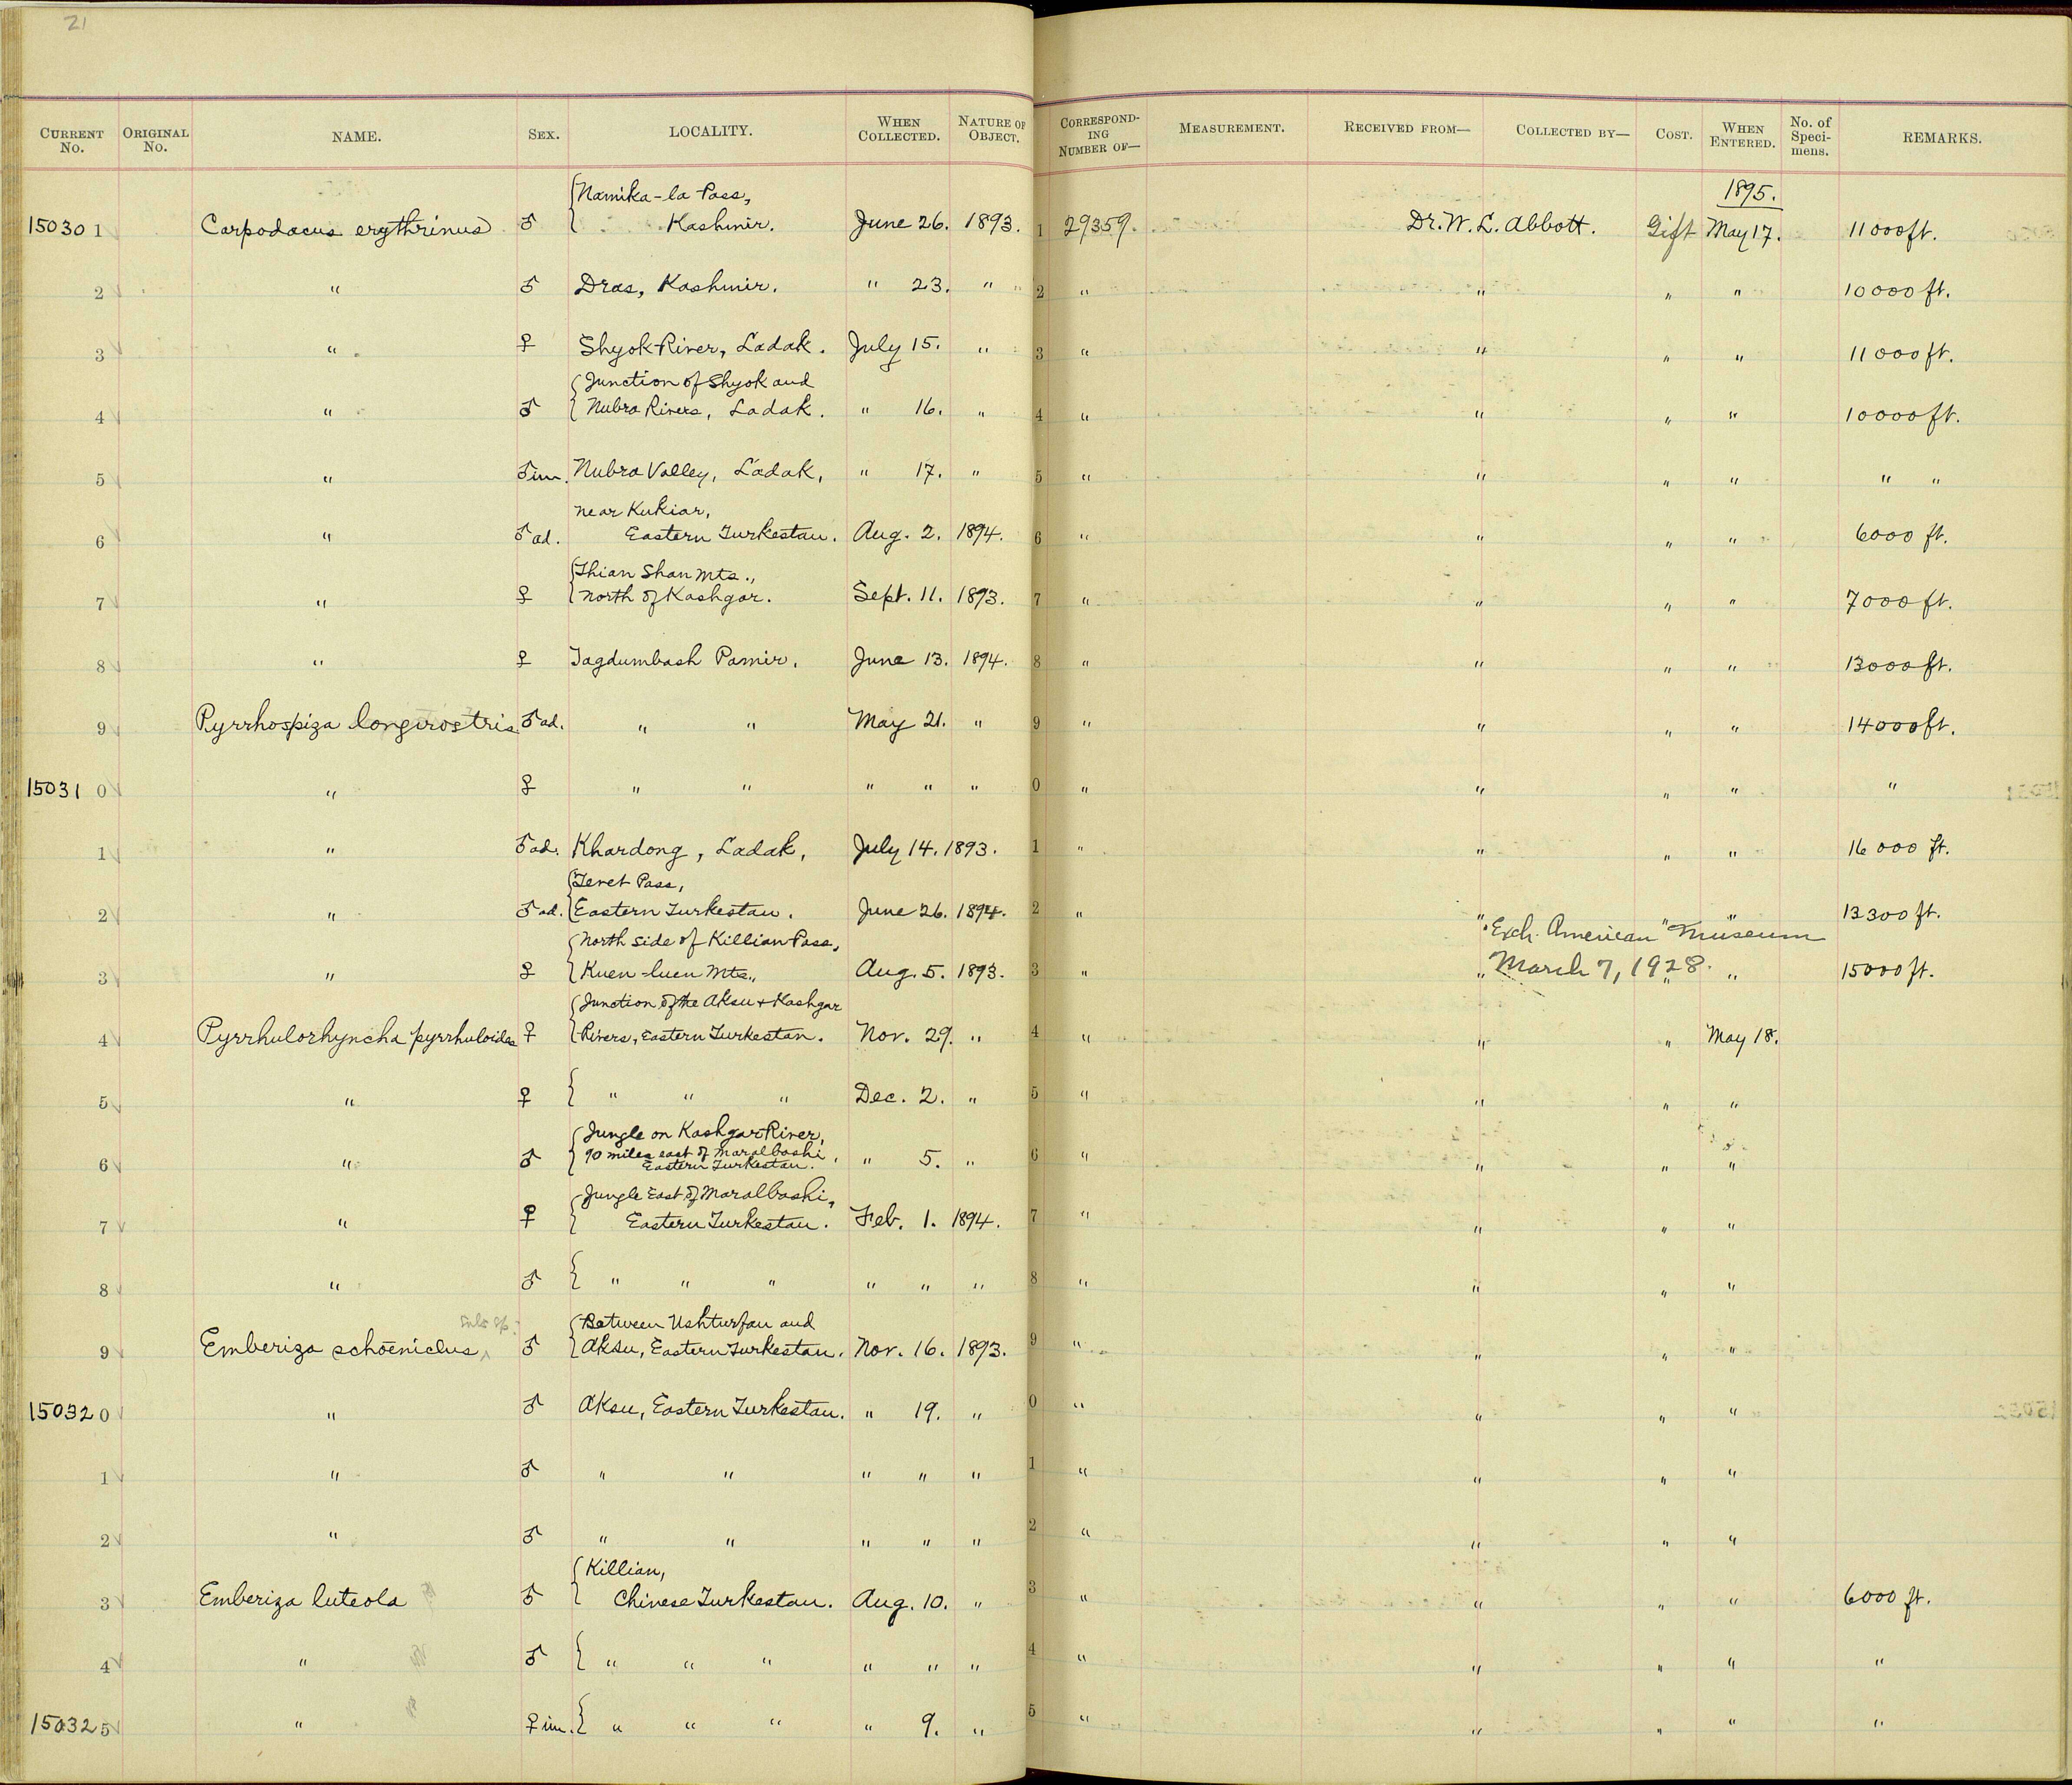 21
CURRENT No. ORIGINAL No. NAME. SEX. LOCALITY. WHEN COLLECTED. NATURE OF OBJECT. CORRESPONDING NUMBER OF— MEASUREMENT. RECEIVED FROM— COLLECTED BY— COST. WHEN ENTERED. No. of Specimens. REMARKS.
{Namika-la Pass, 1895.
150301 Carpodacus erythrinus ♂ Kashmir. June 26. 1893. 1 29359. Dr. W. L. Abbott. Gift May 17. 11000 ft.
2 " ♂ Dras, Kashmir. " 23. " 2 " " " " 10000 ft.
3 " ♀ Shyok River, Ladak. July 15. " 3 " " " " 11000 ft.
{Junction of Shyok and
4 " ♂ Nubra Rivers, Ladak. " 16. " 4 " " " " 10000 ft.
5 " ♂ im. Nubra Valley, Ladak, " 17. " 5 " " " " " "
near Kukiar,
6 " ♂ ad. Eastern Turkestan. Aug. 2. 1894. 6 " " " " 6000 ft.
{Thian Shan Mts.,
7 " ♀ north of Kashgar. Sept. 11. 1893. 7 " " " " 7000 ft.
8 " ♀ Tagdumbash Pamir. June 13. 1894. 8 " " " " 13000 ft.
9 Pyrrhospiza longirostris ♂ ad. " " May 21. " 9 " " " " 14000 ft.
150310 " ♀ " " " " " 0 " " " " "
1 " ♂ ad. Khardong, Ladak, July 14. 1893. 1 " " " " 16000 ft.
{Teret Pass,
2 " ♂ ad. Eastern Turkestan. June 26. 1894. 2 " " " " 13300 ft.
{North side of Killian Pass, Exch. American Museum
3 " ♀ Kuen-luen Mts., Aug. 5. 1893. 3 " " March 7, 1928. " " 15000 ft.
{Junction of the Aksu & Kashgar
4 Pyrrhulorhyncha pyrrhuloides ♀ Rivers, Eastern Turkestan. Nov. 29. " 4 " " " May 18.
5 " ♀ { " " " Dec. 2. " 5 " " " "
{Jungle on Kashgar River,
90 miles east of Maralbashi,
6 " ♂ Eastern Turkestan. " 5. " 6 " " " "
{Jungle East of Maralbashi,
7 " ♀ Eastern Turkestan. Feb. 1. 1894. 7 " " " "
8 " ♂ { " " " " " " 8 " " " "
sub sp. {Between Ushturfan and
9 Emberiza schœniclus ^ ♂ Aksu, Eastern Turkestan. Nov. 16. 1893. 9 " " " "
150320 " ♂ Aksu, Eastern Turkestan. " 19. " 0 " " " "
1 " ♂ " " " " " 1 " " " "
2 " ♂ " " " " " 2 " " " "
{Killian,
3 Emberiza luteola ♂ Chinese Turkestan. Aug. 10. " 3 " " " " 6000 ft.
4 " ♂ { " " " " " " 4 " " " " "
150325 " ♀ im. { " " " " 9. " 5 " " " " "